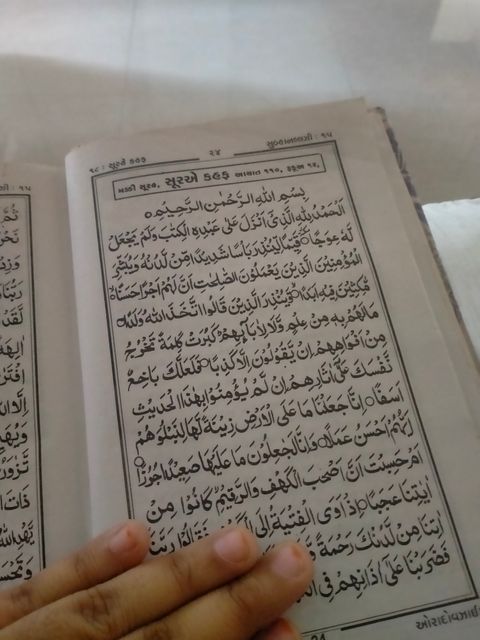 ૧૮ : સૂરએ કહફ ૨૪ સુબ્હાનલ્લઝી : ૧૫
મક્કી સૂરહ, સૂરએ કહફ આયાત ૧૧૦, રૂકૂઅ ૧૨,
بِسْمِ اللهِ الرَّحْمٰنِ الرَّحِيْمِ
اَلْحَمْدُ لِلّٰهِ الَّذِىْٓ اَنْزَلَ عَلٰى عَبْدِهِ الْكِتٰبَ وَلَمْ يَجْعَلْ
لَّهٗ عِوَجًا قَيِّمًا لِّيُنْذِرَ بَاْسًا شَدِيْدًا مِّنْ لَّدُنْهُ وَيُبَشِّرَ
الْمُؤْمِنِيْنَ الَّذِيْنَ يَعْمَلُوْنَ الصّٰلِحٰتِ اَنَّ لَهُمْ اَجْرًا حَسَنًا
مَّاكِثِيْنَ فِيْهِ اَبَدًا وَّيُنْذِرَ الَّذِيْنَ قَالُوا اتَّخَذَ اللهُ وَلَدًا
مَا لَهُمْ بِهٖ مِنْ عِلْمٍ وَّلَا لِاٰبَآئِهِمْ كَبُرَتْ كَلِمَةً تَخْرُجُ
مِنْ اَفْوَاهِهِمْ اِنْ يَّقُوْلُوْنَ اِلَّا كَذِبًا فَلَعَلَّكَ بَاخِعٌ
نَّفْسَكَ عَلٰٓى اٰثَارِهِمْ اِنْ لَّمْ يُؤْمِنُوْا بِهٰذَا الْحَدِيْثِ
اَسَفًا اِنَّا جَعَلْنَا مَا عَلَى الْاَرْضِ زِيْنَةً لَّهَا لِنَبْلُوَهُمْ
اَيُّهُمْ اَحْسَنُ عَمَلًا وَاِنَّا لَجٰعِلُوْنَ مَا عَلَيْهَا صَعِيْدًا جُرُزًا
اَمْ حَسِبْتَ اَنَّ اَصْحٰبَ الْكَهْفِ وَالرَّقِيْمِ كَانُوْا مِنْ
اٰيٰتِنَا عَجَبًا اِذْ اَوَى الْفِتْيَةُ اِلَى فَقَالُوْا رَبَّنَآ
اٰتِنَا مِنْ لَّدُنْكَ رَحْمَةً
فَضَرَبْنَا عَلٰٓى اٰذَانِهِمْ فِى